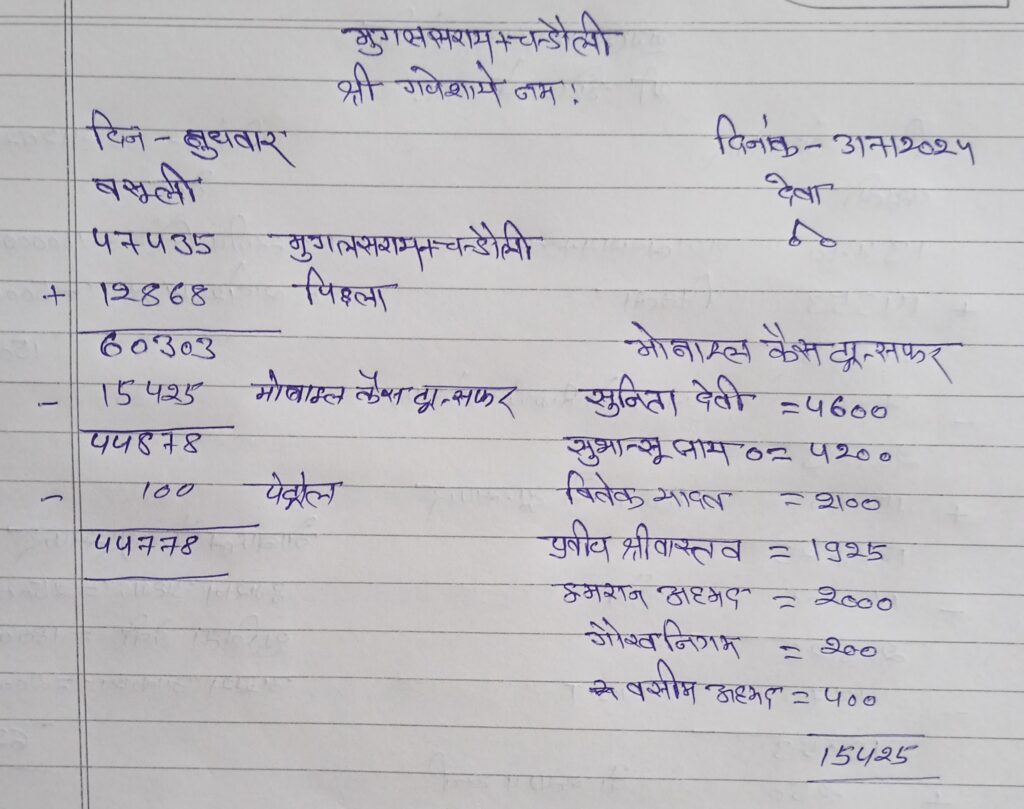 मुगलसराय+चन्दौली
श्री गणेशाये नम:
दिन - बुधवार
दिनांक - 31/7/2024
वसूली
देवा
47435 मुगलसराय+चन्दौली
+ 12868 पिछला
60303
- 15425 मोबाइल कैस ट्रान्सफर
44878
- 100 पेट्रोल
44778
मोबाइल कैस ट्रान्सफर
सुनिता देवी = 4600
सुभान्सू = 4200
विवेक यादव = 2100
प्रवीण श्रीवास्तव = 1925
इमरान अहमद = 2000
गौरव निगम = 200
वसीम अहमद = 400
15425